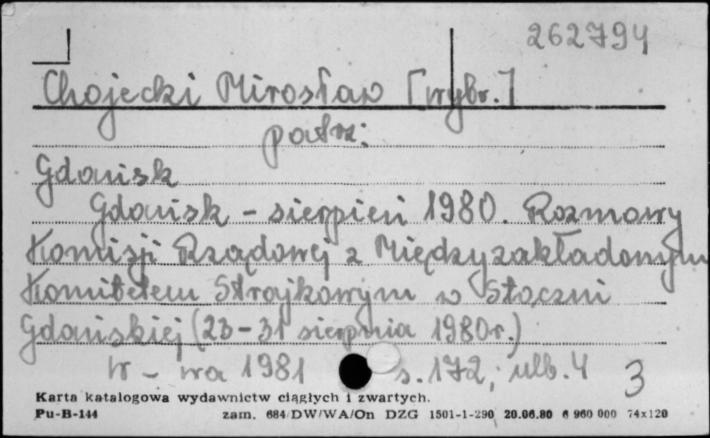 262794
Chojecki Mirosław [wybr.]
patrz:
Gdańsk
Gdańsk - sierpień 1980. Rozmowy
Komisji Rządowej z Międzyzakładowym
Komitetem Strajkowym w Stoczni
Gdańskiej (23-31 sierpnia 1980r.)
W-wa 1981 s. 172, nlb. 4
3
Karta katalogowa wydawnictw ciągłych i zwartych.
Pu-B-144 zam. 684/DW/WA/On DZG 1501-1-290 20.06.80 6 960 000 74x120